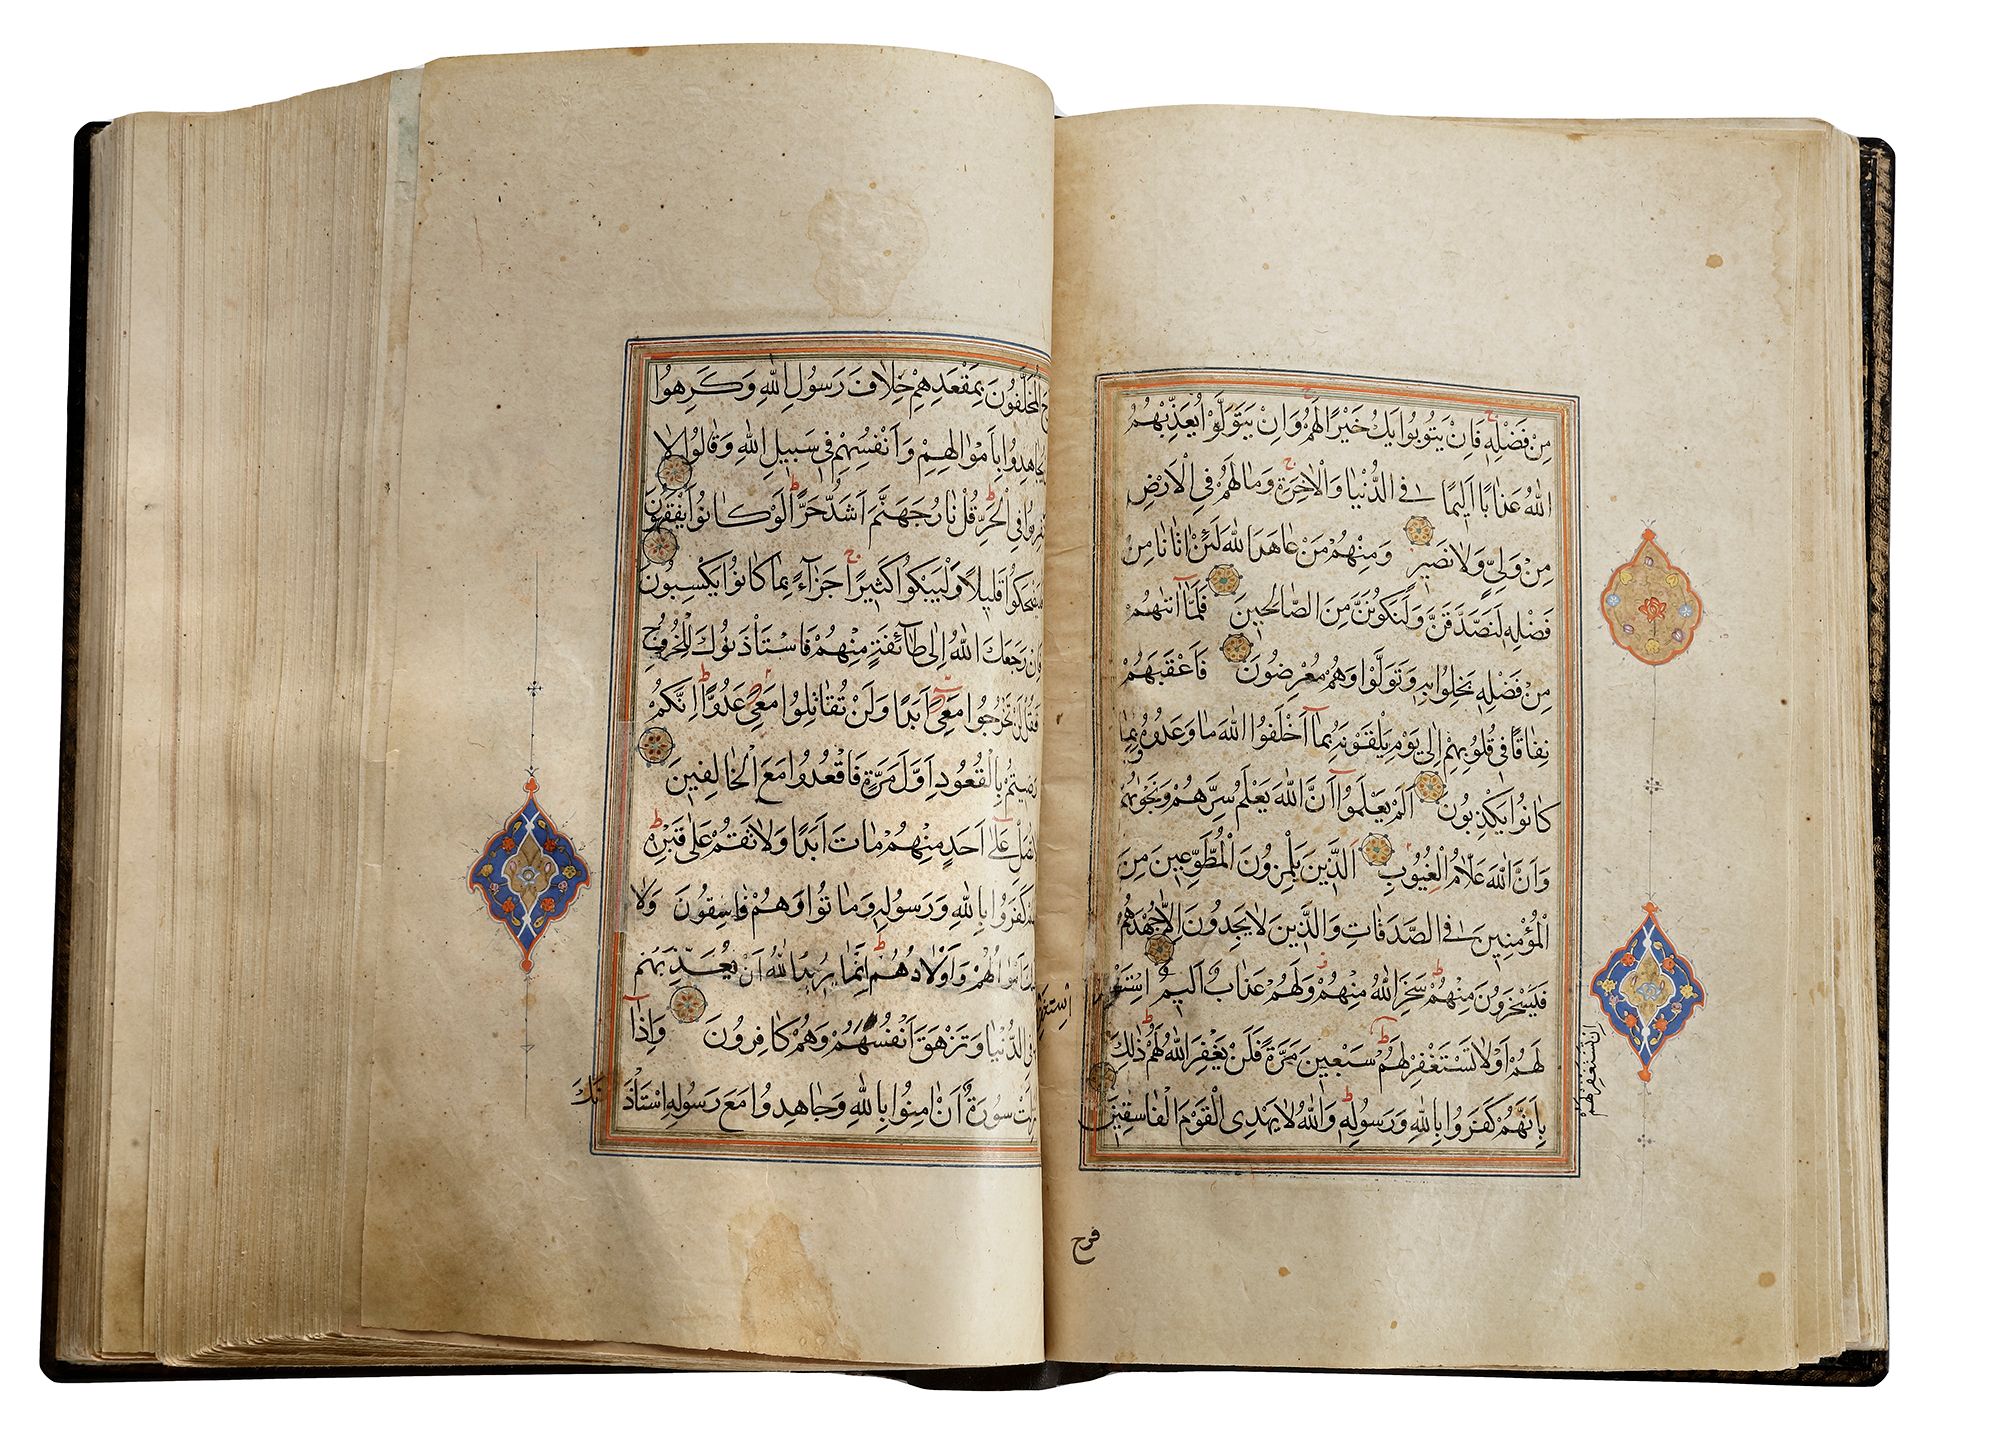 مِنْ فَضْلِهِ فَاِنْ يَتُوبُوا يَكُ خَيْرًا لَهُمْ وَاِنْ يَتَوَلَّوْا يُعَذِّبْهُمُ
اللهُ عَذَابًا اَلِيمًا فِي الدُّنْيَا وَالْاٰخِرَةِ وَمَا لَهُمْ فِي الْاَرْضِ
مِنْ وَلِيٍّ وَلَا نَصِيرٍ وَمِنْهُمْ مَنْ عَاهَدَ اللهَ لَئِنْ اٰتَانَا مِنْ
فَضْلِهِ لَنَصَّدَّقَنَّ وَلَنَكُونَنَّ مِنَ الصَّالِحِينَ فَلَمَّا اٰتٰهُمْ
مِنْ فَضْلِهِ بَخِلُوا بِهِ وَتَوَلَّوْا وَهُمْ مُعْرِضُونَ فَاَعْقَبَهُمْ
نِفَاقًا فِي قُلُوبِهِمْ اِلٰى يَوْمِ يَلْقَوْنَهُ بِمَا اَخْلَفُوا اللهَ مَا وَعَدُوهُ وَبِمَا
كَانُوا يَكْذِبُونَ اَلَمْ يَعْلَمُوا اَنَّ اللهَ يَعْلَمُ سِرَّهُمْ وَنَجْوٰهُمْ
وَاَنَّ اللهَ عَلَّامُ الْغُيُوبِ اَلَّذِينَ يَلْمِزُونَ الْمُطَّوِّعِينَ مِنَ
الْمُؤْمِنِينَ فِي الصَّدَقَاتِ وَالَّذِينَ لَا يَجِدُونَ اِلَّا جُهْدَهُمْ
فَيَسْخَرُونَ مِنْهُمْ سَخِرَ اللهُ مِنْهُمْ وَلَهُمْ عَذَابٌ اَلِيمٌ اِسْتَغْفِرْ
لَهُمْ اَوْ لَا تَسْتَغْفِرْ لَهُمْ سَبْعِينَ مَرَّةً فَلَنْ يَغْفِرَ اللهُ لَهُمْ ذٰلِكَ
بِاَنَّهُمْ كَفَرُوا بِاللهِ وَرَسُولِهِ وَاللهُ لَا يَهْدِي الْقَوْمَ الْفَاسِقِينَ
ان تستغفر لهم
فرح
الْمُخَلَّفُونَ بِمَقْعَدِهِمْ خِلَافَ رَسُولِ اللهِ وَكَرِهُوا
يُجَاهِدُوا بِاَمْوَالِهِمْ وَاَنْفُسِهِمْ فِي سَبِيلِ اللهِ وَقَالُوا لَا
تَنْفِرُوا فِي الْحَرِّ قُلْ نَارُ جَهَنَّمَ اَشَدُّ حَرًّا لَوْ كَانُوا يَفْقَهُونَ
فَلْيَضْحَكُوا قَلِيلًا وَلْيَبْكُوا كَثِيرًا جَزَاءً بِمَا كَانُوا يَكْسِبُونَ
فَاِنْ رَجَعَكَ اللهُ اِلٰى طَائِفَةٍ مِنْهُمْ فَاسْتَأْذَنُوكَ لِلْخُرُوجِ
فَقُلْ لَنْ تَخْرُجُوا مَعِيَ اَبَدًا وَلَنْ تُقَاتِلُوا مَعِيَ عَدُوًّا اِنَّكُمْ
رَضِيتُمْ بِالْقُعُودِ اَوَّلَ مَرَّةٍ فَاقْعُدُوا مَعَ الْخَالِفِينَ
تُصَلِّ عَلٰى اَحَدٍ مِنْهُمْ مَاتَ اَبَدًا وَلَا تَقُمْ عَلٰى قَبْرِهِ
كَفَرُوا بِاللهِ وَرَسُولِهِ وَمَاتُوا وَهُمْ فَاسِقُونَ وَلَا
اَمْوَالُهُمْ وَاَوْلَادُهُمْ اِنَّمَا يُرِيدُ اللهُ اَنْ يُعَذِّبَهُمْ
فِي الدُّنْيَا وَتَزْهَقَ اَنْفُسُهُمْ وَهُمْ كَافِرُونَ وَاِذَا
سُورَةٌ اَنْ اٰمِنُوا بِاللهِ وَجَاهِدُوا مَعَ رَسُولِهِ اسْتَأْذَنَكَ